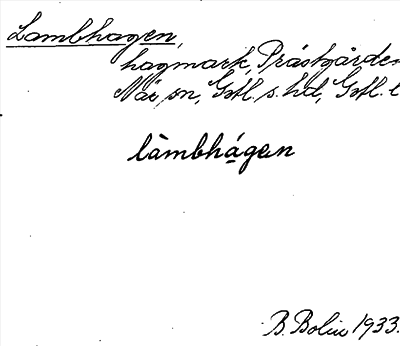 Lambhagen,
hagmark, Prästgården
När sn, Gotl. s. hd, Gotl. l
làmbhá̱gen
B. Bolin 1933.